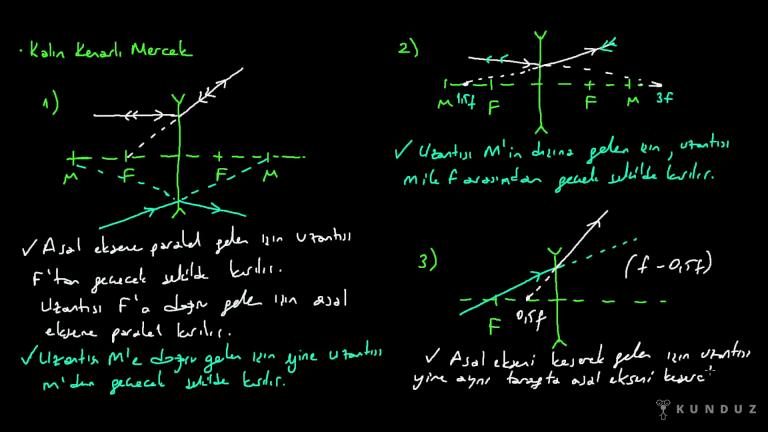 · Kalın Kenarlı Mercek
1)
M F F M
✓ Asal eksene paralel gelen ışın uzantısı
F'ten geçecek şekilde kırılır.
Uzantısı F'a doğru gelen ışın asal
eksene paralel kırılır.
✓ Uzantısı M'e doğru gelen ışın yine uzantısı
M'den geçecek şekilde kırılır.
2)
M 1,5f F F M 3f
✓ Uzantısı M'in dışına gelen ışın, uzantısı
M ile F arasından geçecek şekilde kırılır.
3)
(f - 0,5f)
F 0,5f
✓ Asal ekseni keserek gelen ışın uzantısı
yine aynı tarafta asal ekseni keser
KUNDUZ